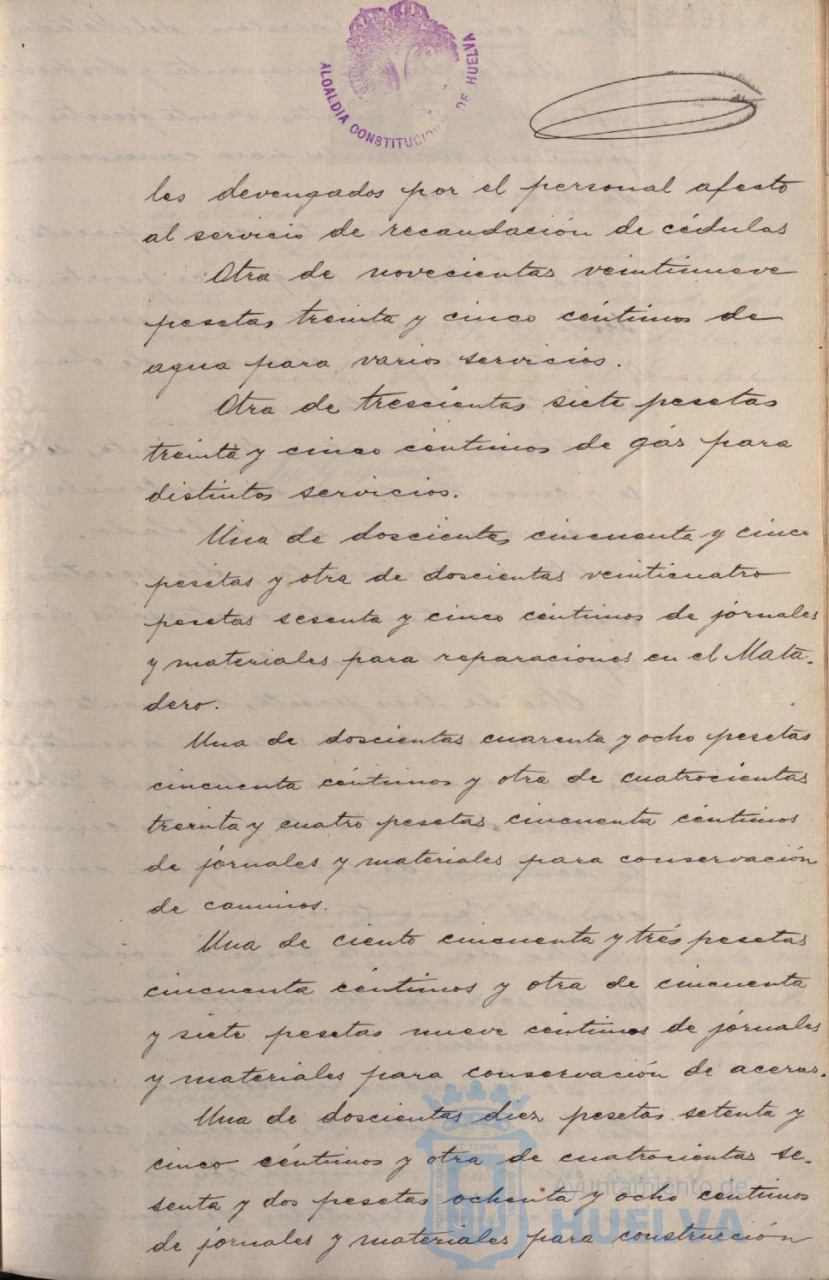 ALCALDIA CONSTITUCIONAL DE HUELVA
les devengados por el personal afecto
al servicio de recaudación de cédulas
Otra de novecientas veintinueve
pesetas treinta y cinco céntimos de
agua para varios servicios.
Otra de trescientas siete pesetas
treinta y cinco céntimos de gás para
distintos servicios.
Una de doscientas cincuenta y cinco
pesetas y otra de doscientas veinticuatro
pesetas sesenta y cinco céntimos de jornales
y materiales para reparaciones en el Mata-
dero.
Una de doscientas cuarenta y ocho pesetas
cincuenta céntimos y otra de cuatrocientas
treinta y cuatro pesetas cincuenta céntimos
de jornales y materiales para conservación
de caminos.
Una de ciento cincuenta y trés pesetas
cincuenta céntimos y otra de cincuenta
y siete pesetas nueve céntimos de jornales
y materiales para conservación de aceras.
Una de doscientas diez pesetas setenta y
cinco céntimos y otra de cuatrocientas se-
senta y dos pesetas ochenta y ocho centimos
de jornales y materiales para construcción
Ayuntamiento de
HUELVA